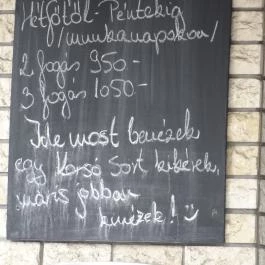 Hétfőtől-Péntekig
/munkanapokon/
2 fogás 950-
3 fogás 1050-
Ide most benézek
egy korsó sört kikérek,
máris jobban
kinézek!